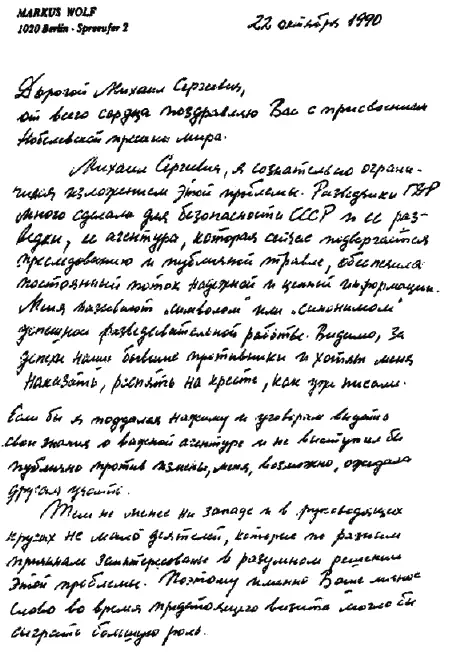 MARKUS WOLF
1020 Berlin · Spreeufer 2
22 октября 1990
Дорогой Михаил Сергеевич,
от всего сердца поздравляю Вас с присвоением
Нобелевской премии мира.
Михаил Сергеевич, я сознательно ограни-
чился изложением этой проблемы. Разведчики ГДР
много сделали для безопасности СССР и ее раз-
ведки, ее агентура, которая сейчас подвергается
преследованию и публичной травле, обеспечила
постоянный поток надежной и ценной информации.
Меня называют „символом" или „синонимом"
успешной разведывательной работы. Видимо, за
успехи наши бывшие противники и хотят меня
наказать, распять на кресте, как уже писали.
Если бы я поддался нажиму и уговорам выдать
свои знания о важной агентуре и не выступил бы
публично против измены, меня, возможно, ожидала
другая участь.
Тем не менее на Западе и в руководящих
кругах не мало деятелей, которые по разным
причинам заинтересованы в разумном решении
этой проблемы. Поэтому именно Ваше личное
слово во время предстоящего визита могло бы
сыграть большую роль.